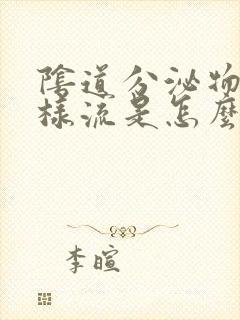 陰道分泌物
樣流是怎麼
李暄